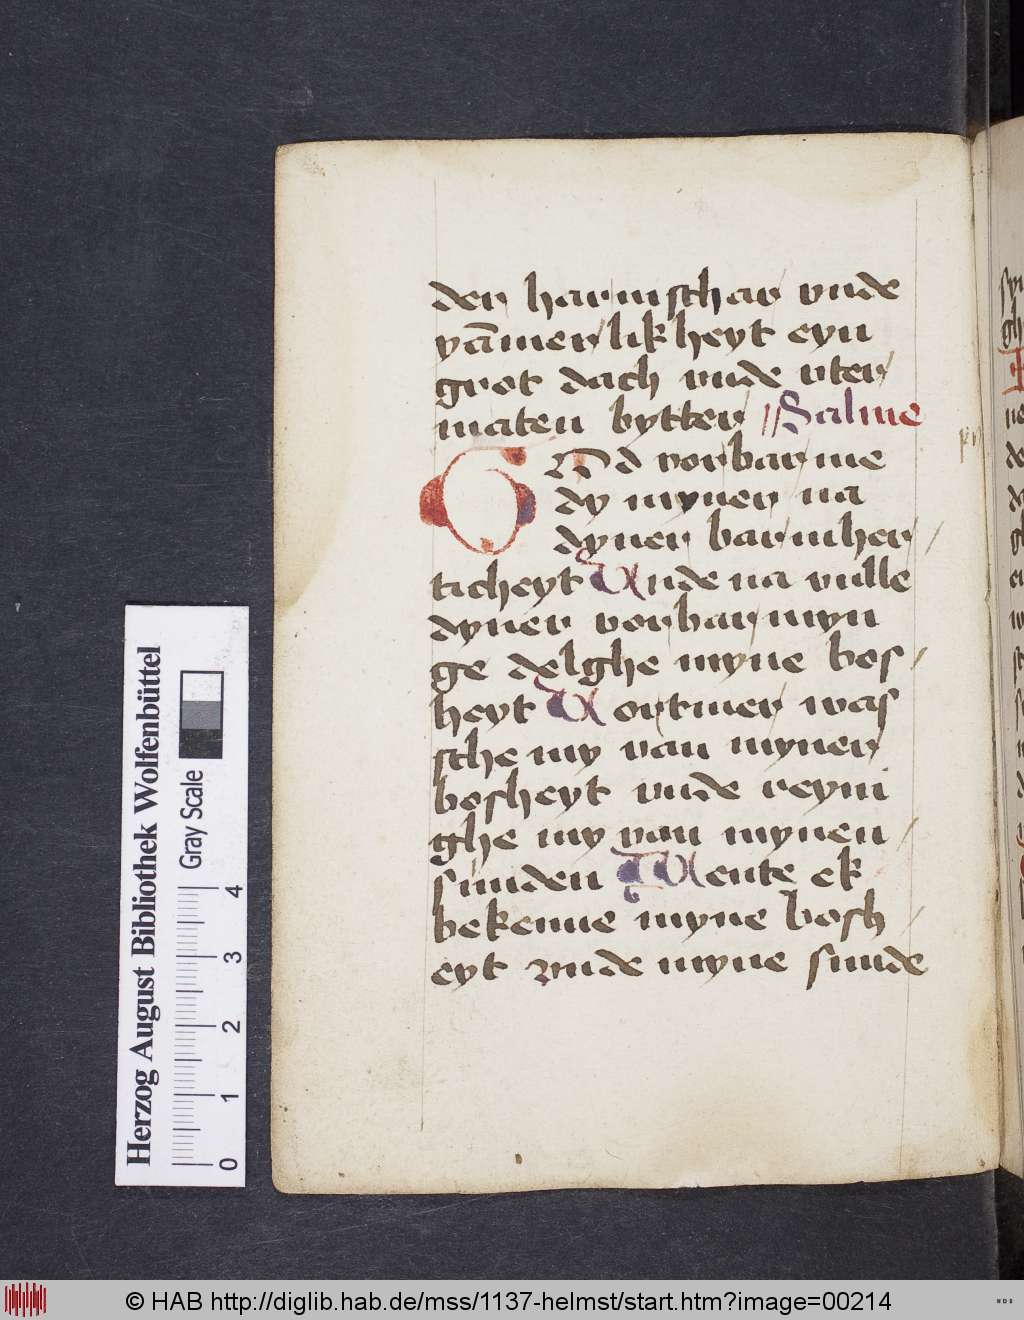 der harmschar vnde
yāmerlikheyt eyn
grot dach vnde vter
maten bytter Salme
God vorbarme
dy myner na
dyner barmher
ticheyt Unde na vulle
dyner vorbarmyn
ge delghe myne bos
heyt Vortmer was
sche my van myner
bosheyt vnde reyni
ghe my van mynen
sunden Wente ek
bekenne myne bosh
eyt vnde myne sunde
Herzog August Bibliothek Wolfenbüttel
Gray Scale
0 1 2 3 4
© HAB http://diglib.hab.de/mss/1137-helmst/start.htm?image=00214